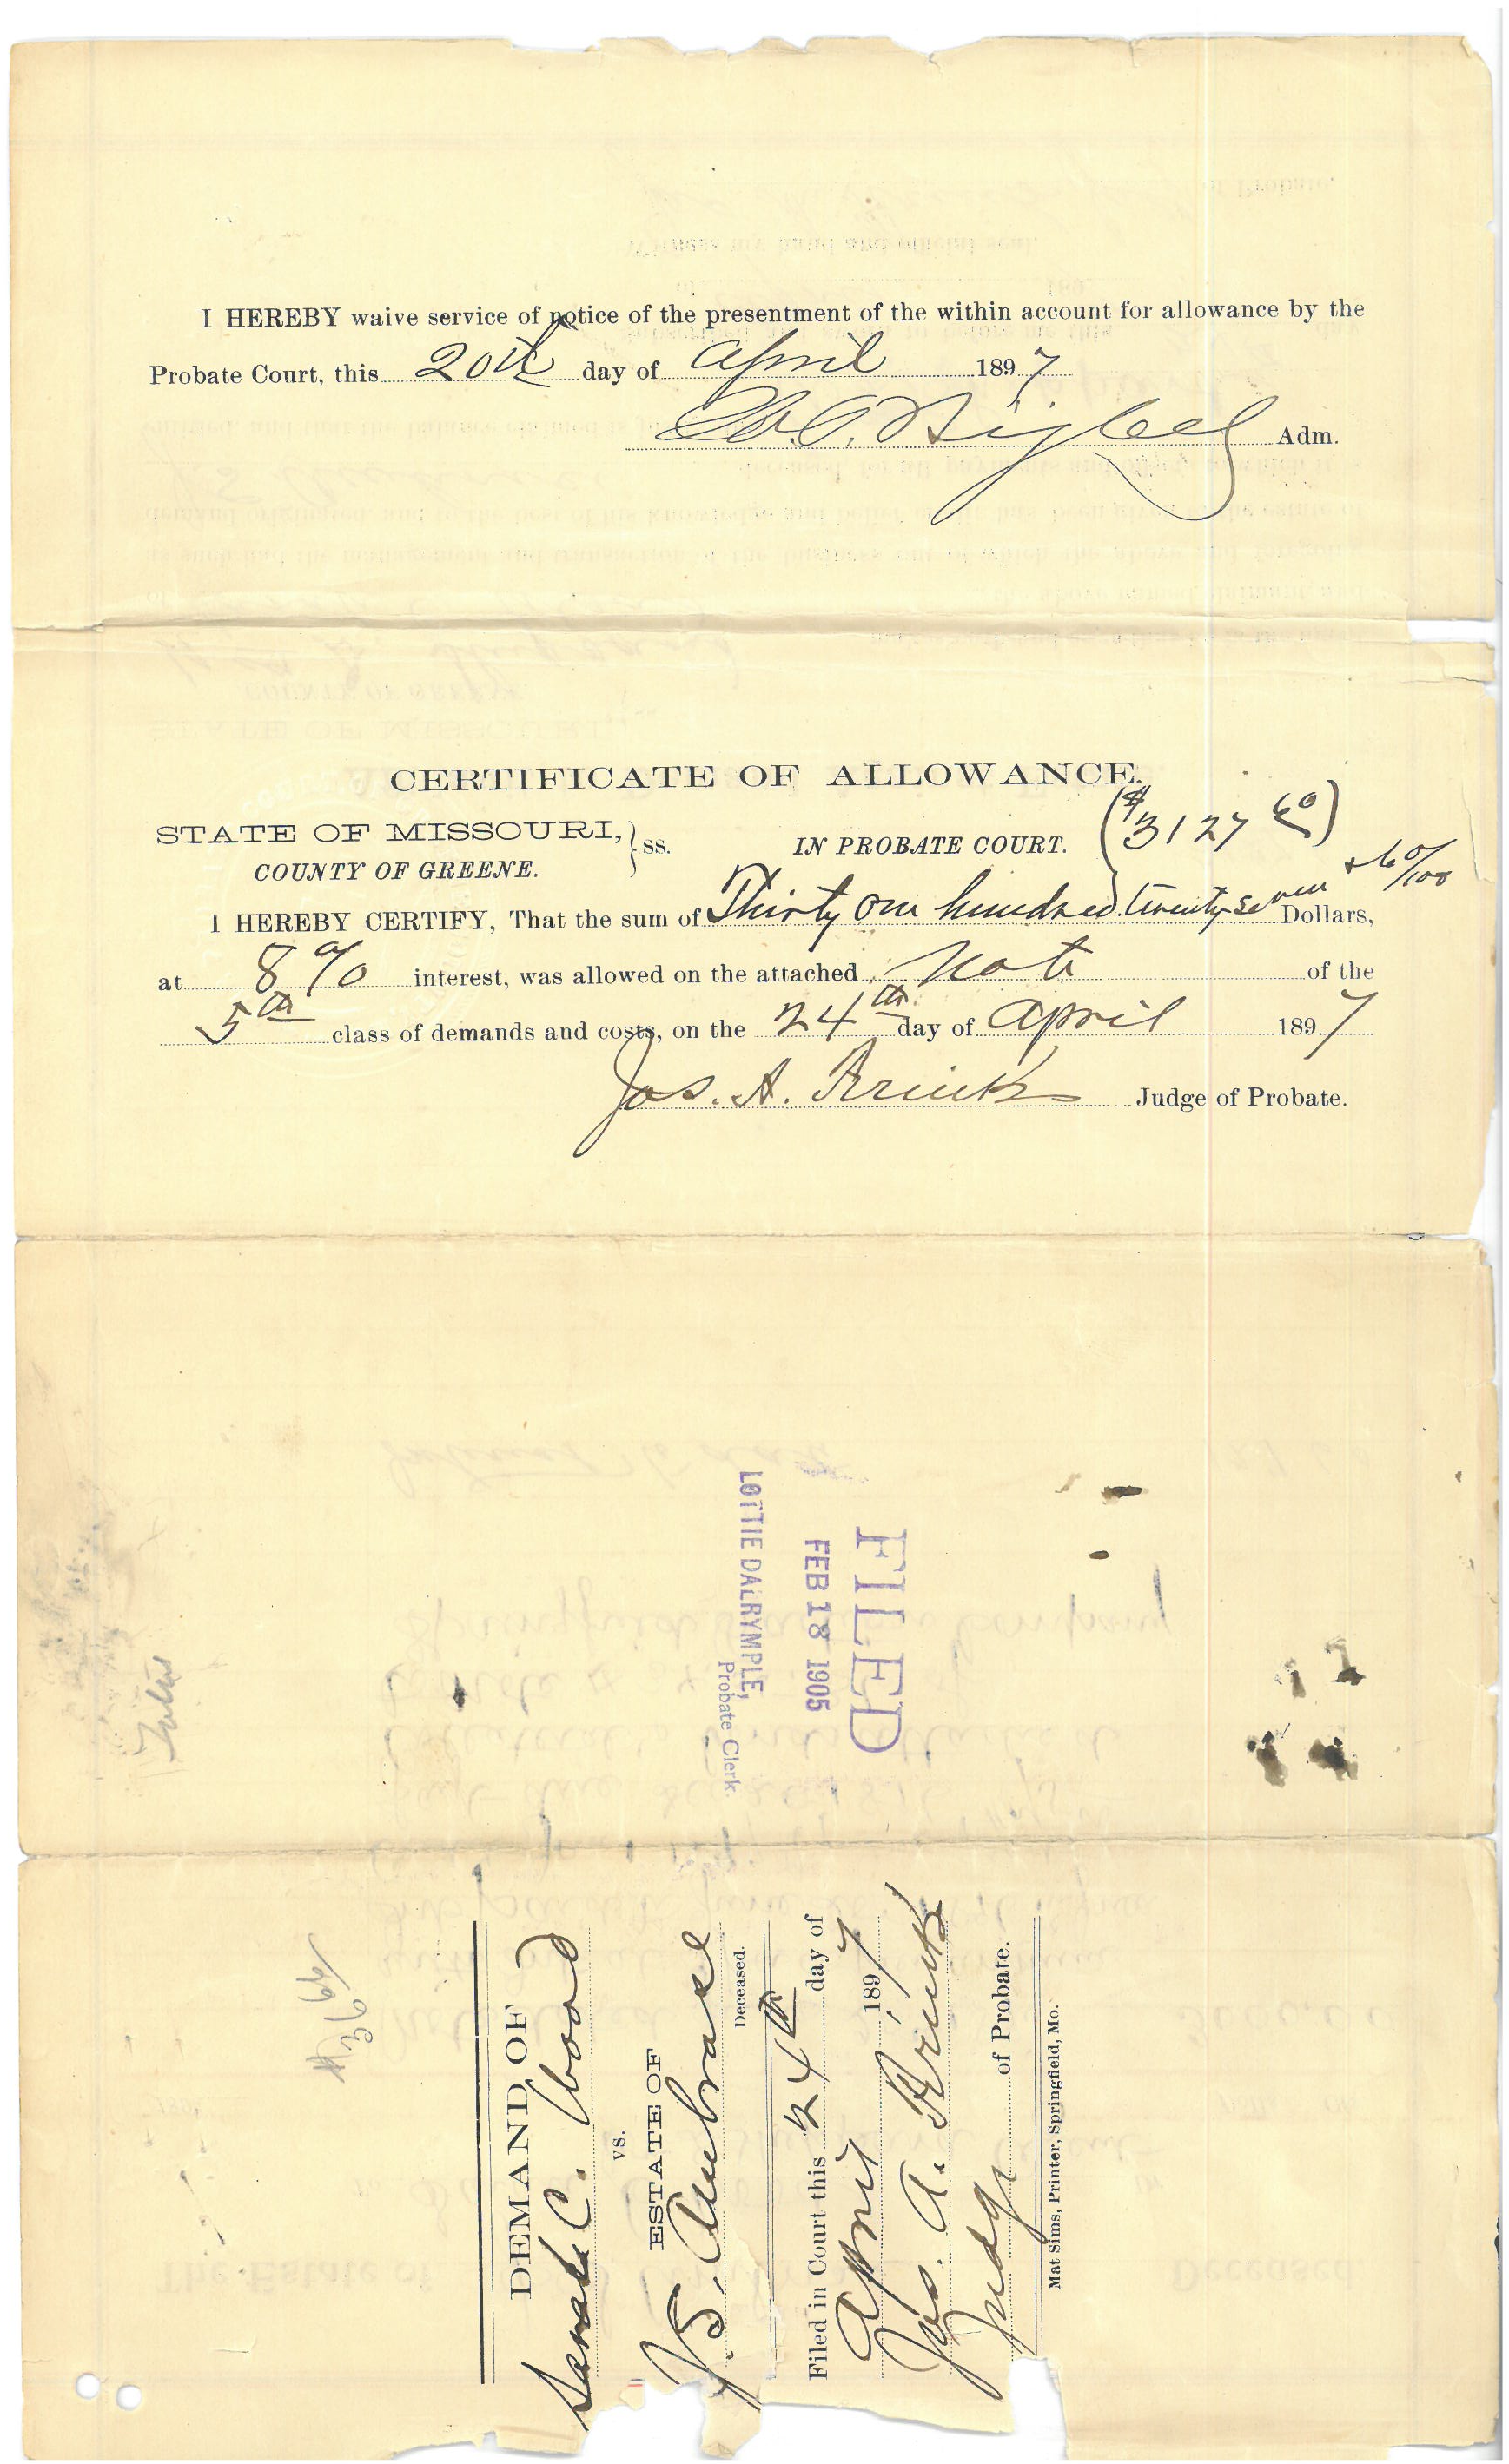 I HEREBY waive service of notice of the presentment of the within account for allowance by the
Probate Court, this 20th day of April 1897
Adm.
CERTIFICATE OF ALLOWANCE.
STATE OF MISSOURI, } ss. IN PROBATE COURT. ($3127 60)
COUNTY OF GREENE.
& 60/100
I HEREBY CERTIFY, That the sum of Thirty One hundred twenty seven Dollars,
at 8% interest, was allowed on the attached Note of the
5th class of demands and costs, on the 24th day of April 1897
Jos. A. Judge of Probate.
FILED
FEB 18 1905
LOTTIE DALRYMPLE,
Probate Clerk.
DEMAND OF
Sarah C. Wood
vs.
ESTATE OF
J. S. Ambrose
Deceased.
Filed in Court this 24th day of
April 1897
Jos. A.
Judge of Probate.
Mat Sims, Printer, Springfield, Mo.